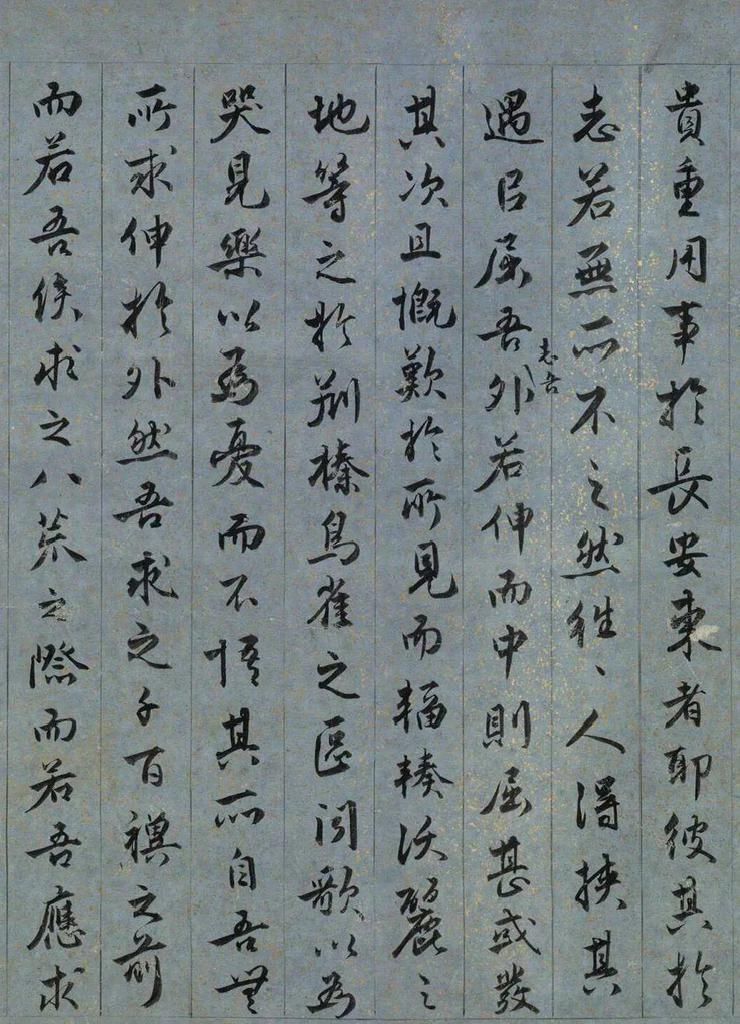 貴重用事於長安東者耶彼其於
志若無所不之然往々人得挾其
遇㠯屈吾志吾外若伸而中則屈甚或發
其次且慨歎於所見而輻輳沃麗之
地等之於荊榛鳥雀之區聞歌以為
哭見樂以為憂而不悟其所自吾無
所求伸於外然吾求之千百禩之前
而若吾俟求之八荒之際而若吾應求